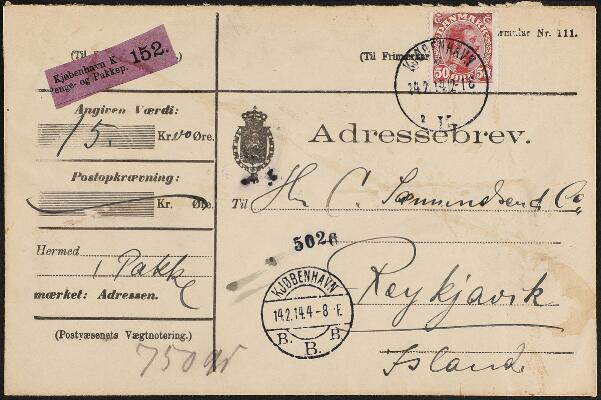 Formular Nr. 111.
(Til Frimærker
Kjøbenhavn K
enge- og Pakkep.
152.
DANMARK
50 ØRE 50
KJØBENHAVN
14.2.14.12-1 E
K.
Angiven Værdi:
15. Kr. 00 Øre.
Postopkrævning:
Kr. Øre.
Adressebrev.
Til Hr. C. Sæmundsen & Co,
5026
Hermed
1 Pakke
mærket: Adressen.
KJØBENHAVN
14.2.14.4-8 E.
B. B. B
Reykjavik
Island.
(Postvæsenets Vægtnotering.)
750 gr